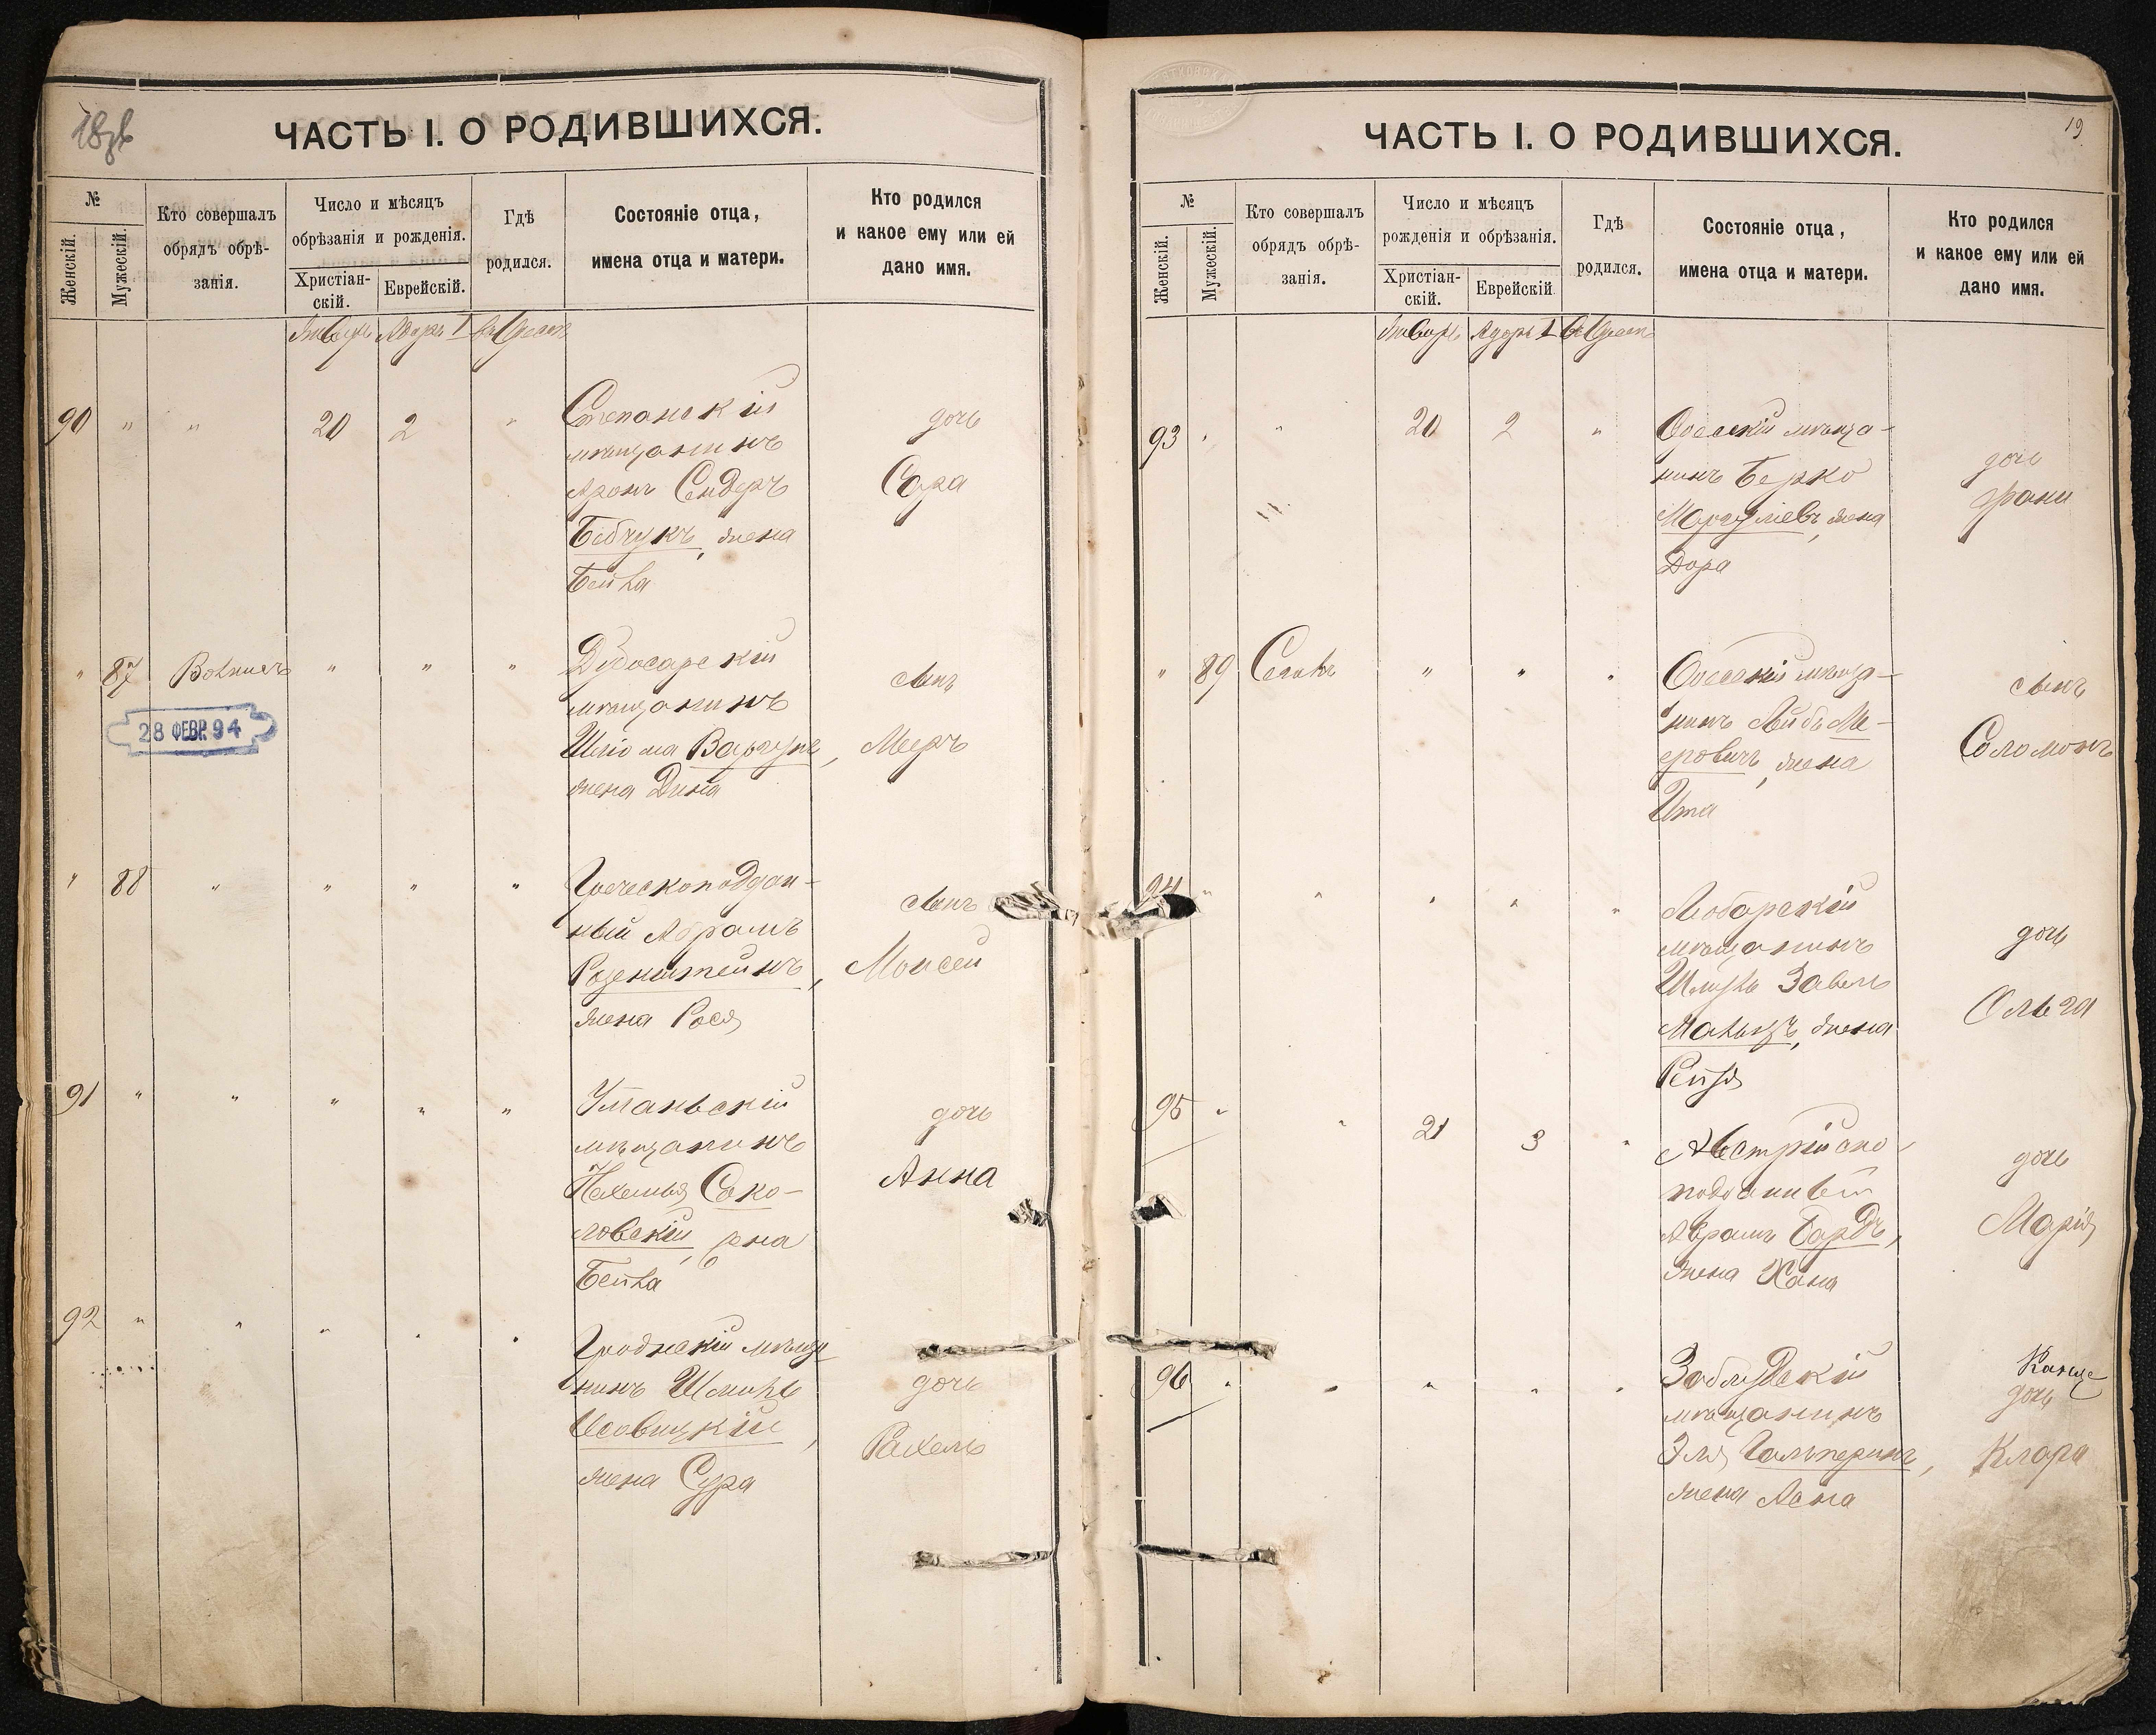 18об
ЧАСТЬ I. О РОДИВШИХСЯ.
№
Женскій.
Мужескій.
Кто совершалъ
обрядъ обрѣ-
занія.
Число и мѣсяцъ
обрѣзанія и рожденія.
Христіан-
скій.
Еврейскій.
Гдѣ
родился.
Состояніе отца,
имена отца и матери.
Кто родился
и какое ему или ей
дано имя.
Январь Адаръ I въ Одессѣ
90 " " 20 2 "
Степанскій
мѣщанинъ
Аронъ Сендеръ
Бебчукъ, жена
Бейла
дочь
Сура
" 87 " " "
28 ФЕВР. 94
Дубосарскій
мѣщанинъ
Шлiома Варгунъ,
жена Дина
сынъ
Мееръ
" 88 " " " "
Греческоподдан-
ный Абрамъ
Розенштейнъ,
жена Рося
сынъ
Моисей
91 " " " " "
Уманьскій
мѣщанинъ
Нахемья Соко-
ловскій, жена
Бейла
дочь
Анна
92 " " " " "
Гродненскій мѣща
нинъ Шмиль
жена Сура
дочь
Рахель
19
ЧАСТЬ I. О РОДИВШИХСЯ.
№
Женскій.
Мужескій.
Кто совершалъ
обрядъ обрѣ-
занія.
Число и мѣсяцъ
рожденія и обрѣзанія.
Христіан-
скій.
Еврейскій
Гдѣ
родился.
Состояніе отца,
имена отца и матери.
Кто родился
и какое ему или ей
дано имя.
Январь Адаръ I въ Одессѣ
93 " " 20 2 "
Одесскій мѣща-
нинъ Берко
Моргулiевъ, жена
Дора
дочь
Фани
" 89 " " "
Одесскій мѣща-
нинъ Лейбъ Ме-
еровичъ, жена
Ита
сынъ
Соломонъ
94 " " " " "
Любарскій
мѣщанинъ
Завель
жена
Рейзя
дочь
Ольга
95 " " 21 3 "
Австрійско-
подданный
Абрамъ Бардъ,
жена Хана
дочь
Марія
96 " " " " "
Заблудскій
мѣщанинъ
Эля Гальперинъ,
жена Асна
дочь
Клара